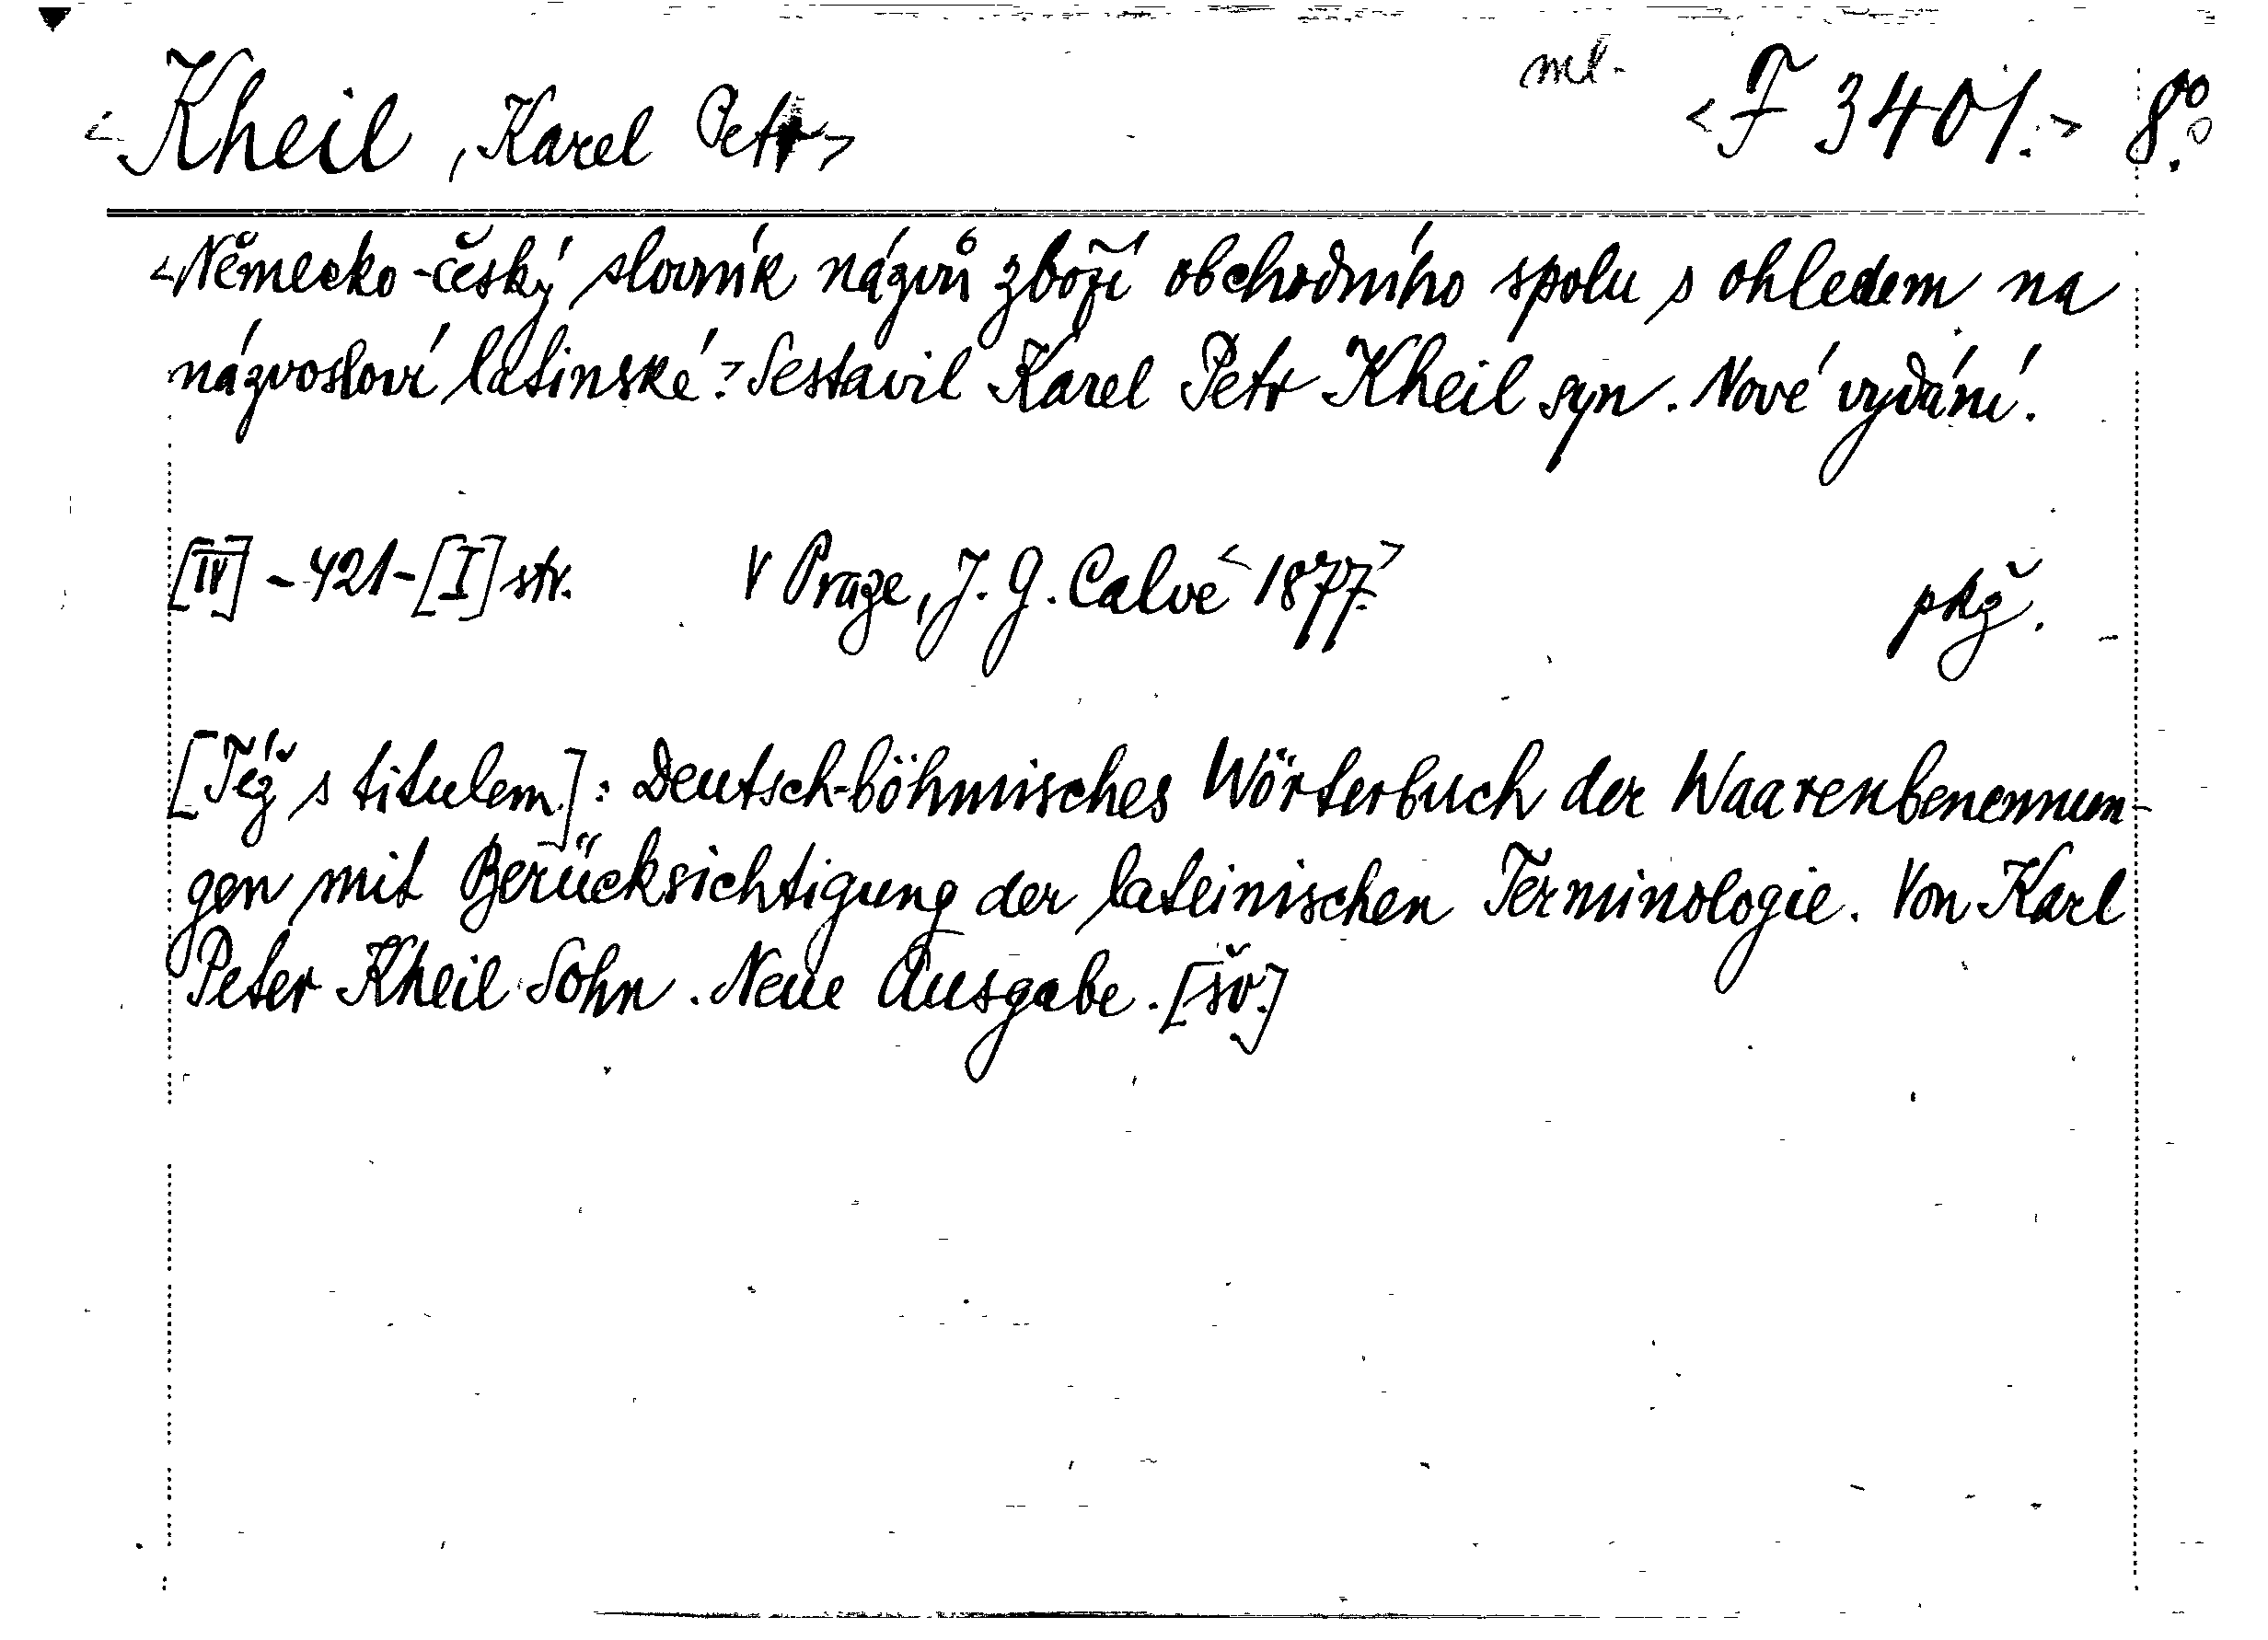 <Kheil, Karel Petr> ml. <F 3401.> 8°.
<Německo-český slovník názvů zboží obchodního spolu s ohledem na
názvosloví latinské.> Sestavil Karel Petr Kheil syn. Nové vydání.
[IV] - 421 - [I] str. V Praze, J. G. Calve <1877.> pkž.
[Též s titulem]: Deutsch-böhmisches Wörterbuch der Waarenbenennun-
gen mit Berücksichtigung der lateinischen Terminologie. Von Karl
Peter Kheil Sohn. Neue Ausgabe. [šv.]